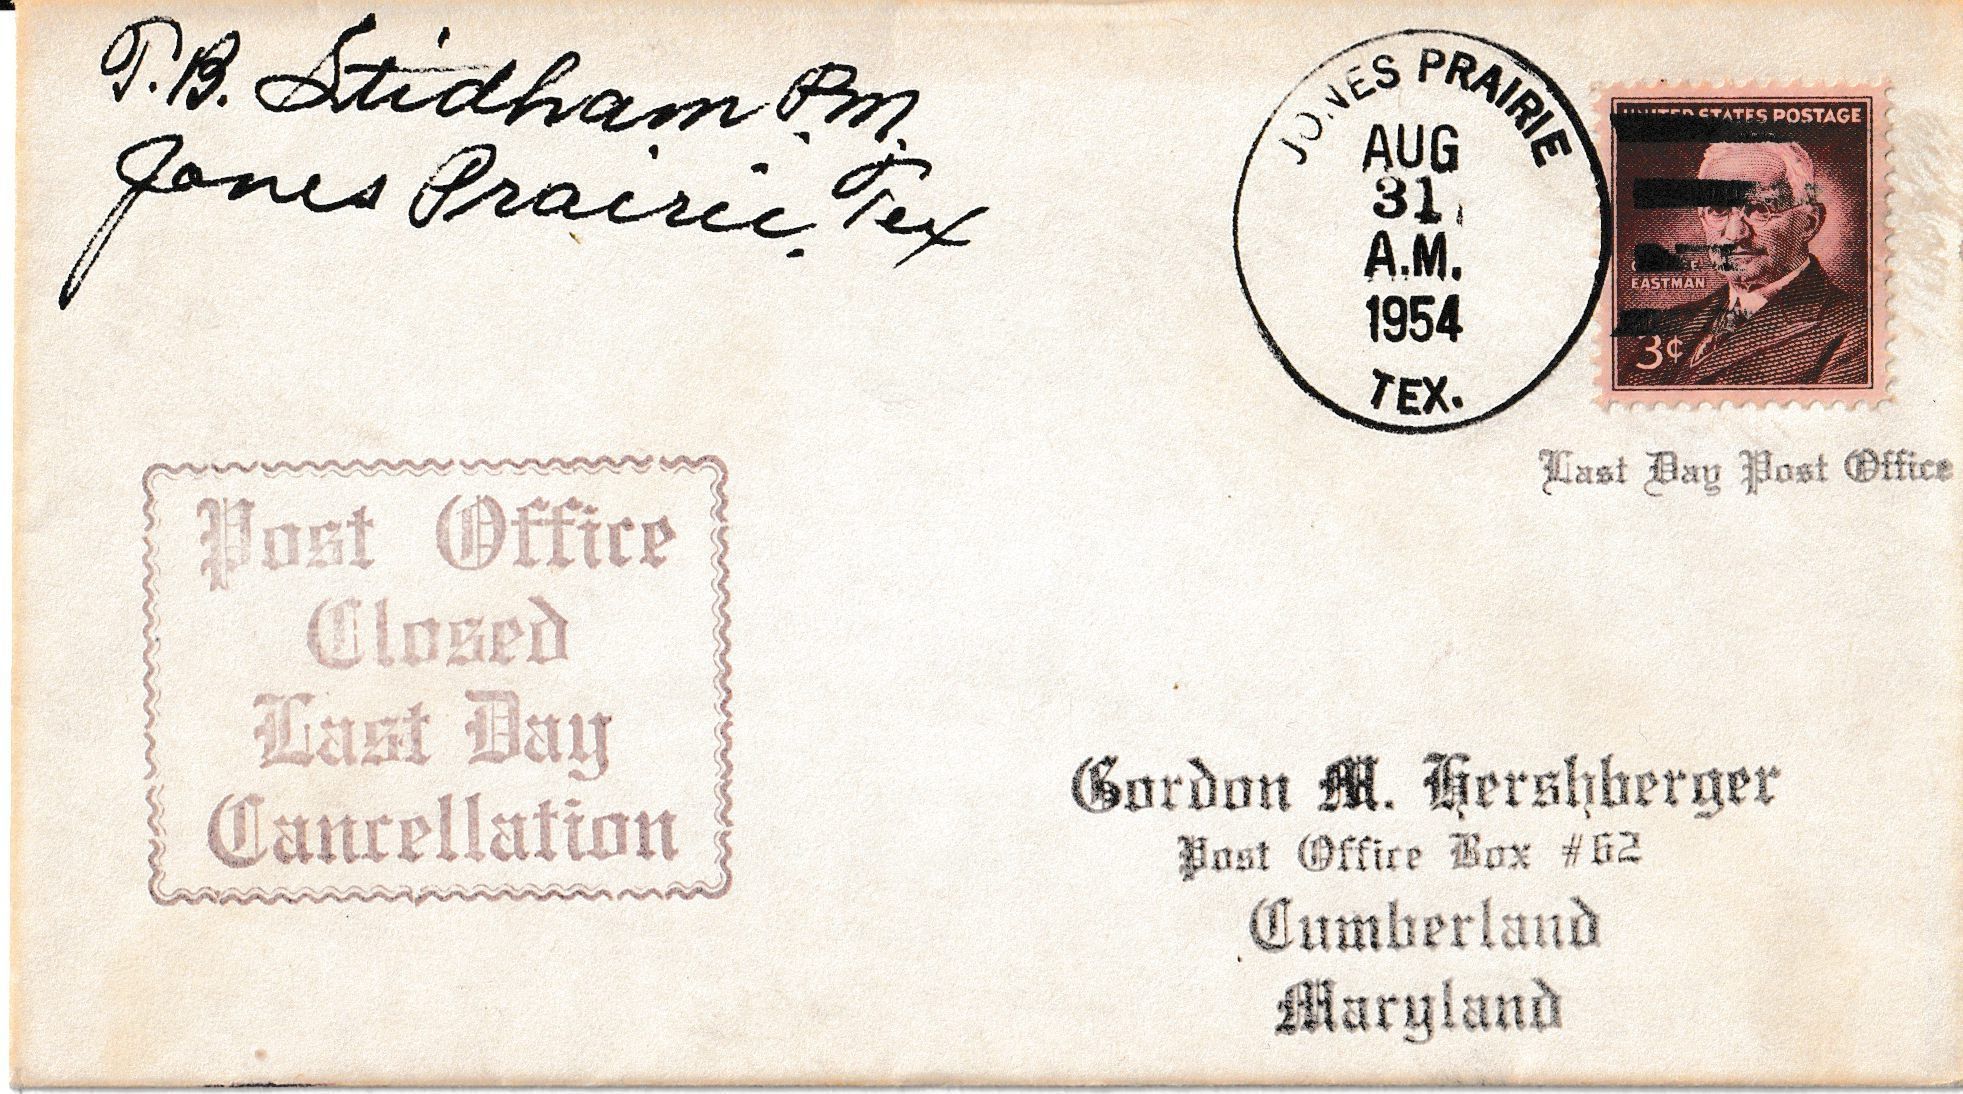 T.B. Stidham P.M.
Jones Prairie, Tex
JONES PRAIRIE
AUG
31
A.M.
1954
TEX.
UNITED STATES POSTAGE
EASTMAN
3¢
Last Day Post Office
Post Office
Closed
Last Day
Cancellation
Gordon M. Hershberger
Post Office Box #62
Cumberland
Maryland